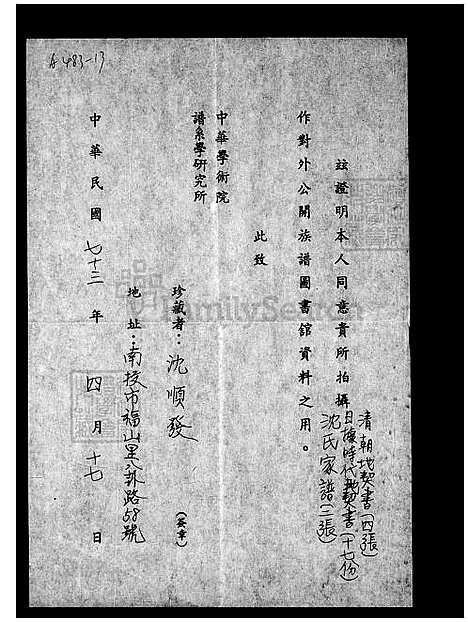 A483-13
茲證明本人同意貴所拍攝
清朝地契書(四張)
日據時代地契書(十七份)
沈氏家譜(二張)
作對外公開族譜圖書舘資料之用。
此致
中華學術院
譜系學研究所
珍藏者：沈順發(簽章)
地址：南投市福山里八卦路58號
中華民國七十三年四月十七日
FamilySearch